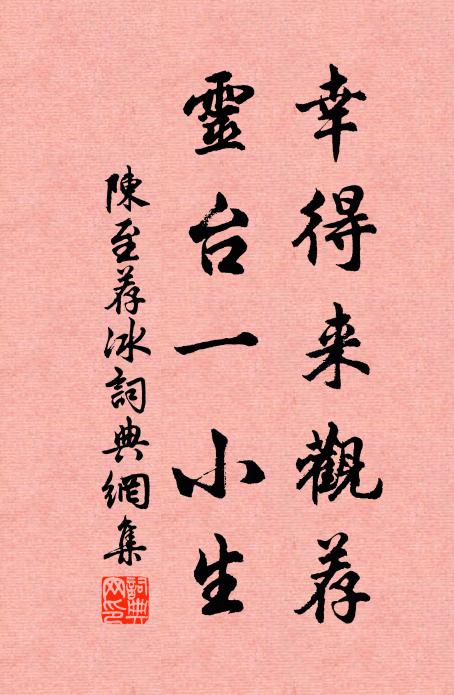 幸得来觀荐
靈台一小生
陳至荐冰詞典網集
詞典网印